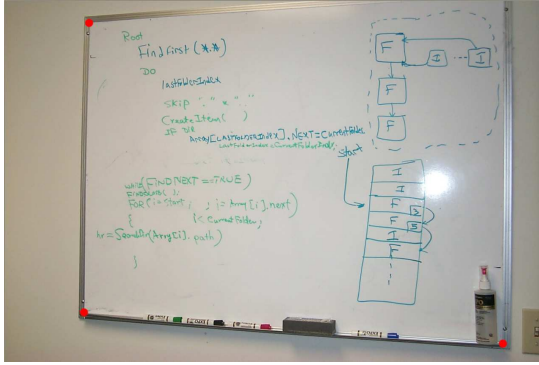 Root
Findfirst (*.*)
DO
lastfolderIndex
Skip "." & ".."
CreateItem( )
IF DIR
Array[LASTFOLDERINDEX].NEXT=CurrentFolder
LastFolderIndex = CurrentFolderIndex;
while(FINDNEXT == TRUE)
FOR(i=Start, ; i= Array[i].next)
{
i< CurrentFolder;
hr=SearchDir(Array[i].path)
}
F
I
I
F
F
Start
I
I
F
3
F
5
I
F